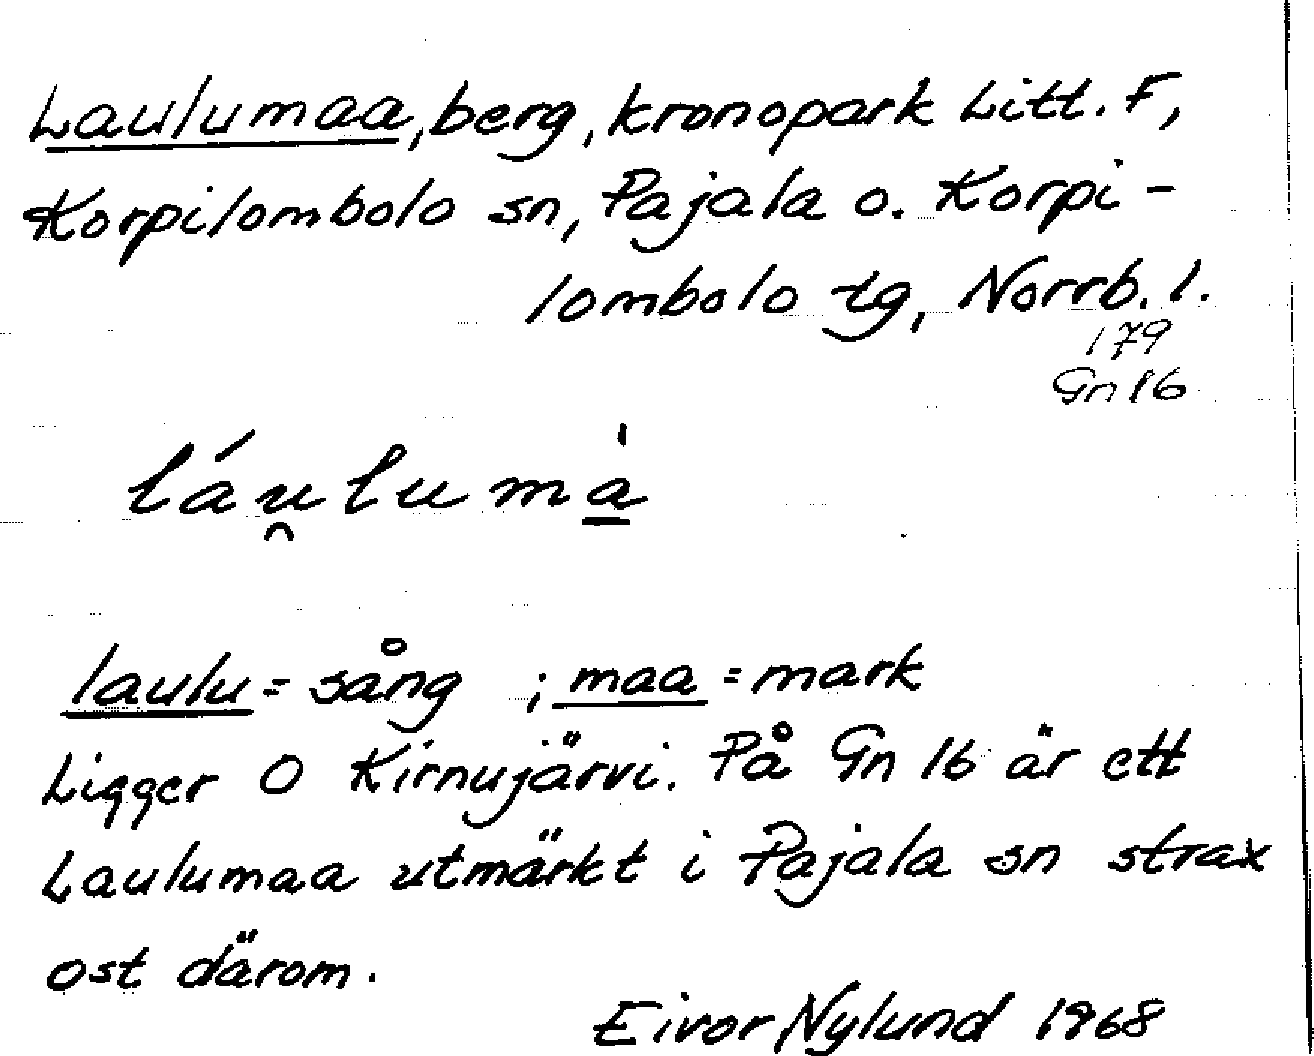 Laulumaa, berg, kronopark Litt. F,
Korpilombolo sn, Pajala o. Korpi-
lombolo tg, Norrb. l.
179
Gn 16
láu̯lumà̱
laulu = sång ; maa = mark
Ligger O Kirnujärvi. På Gn 16 är ett
Laulumaa utmärkt i Pajala sn strax
ost därom.
Eivor Nylund 1968